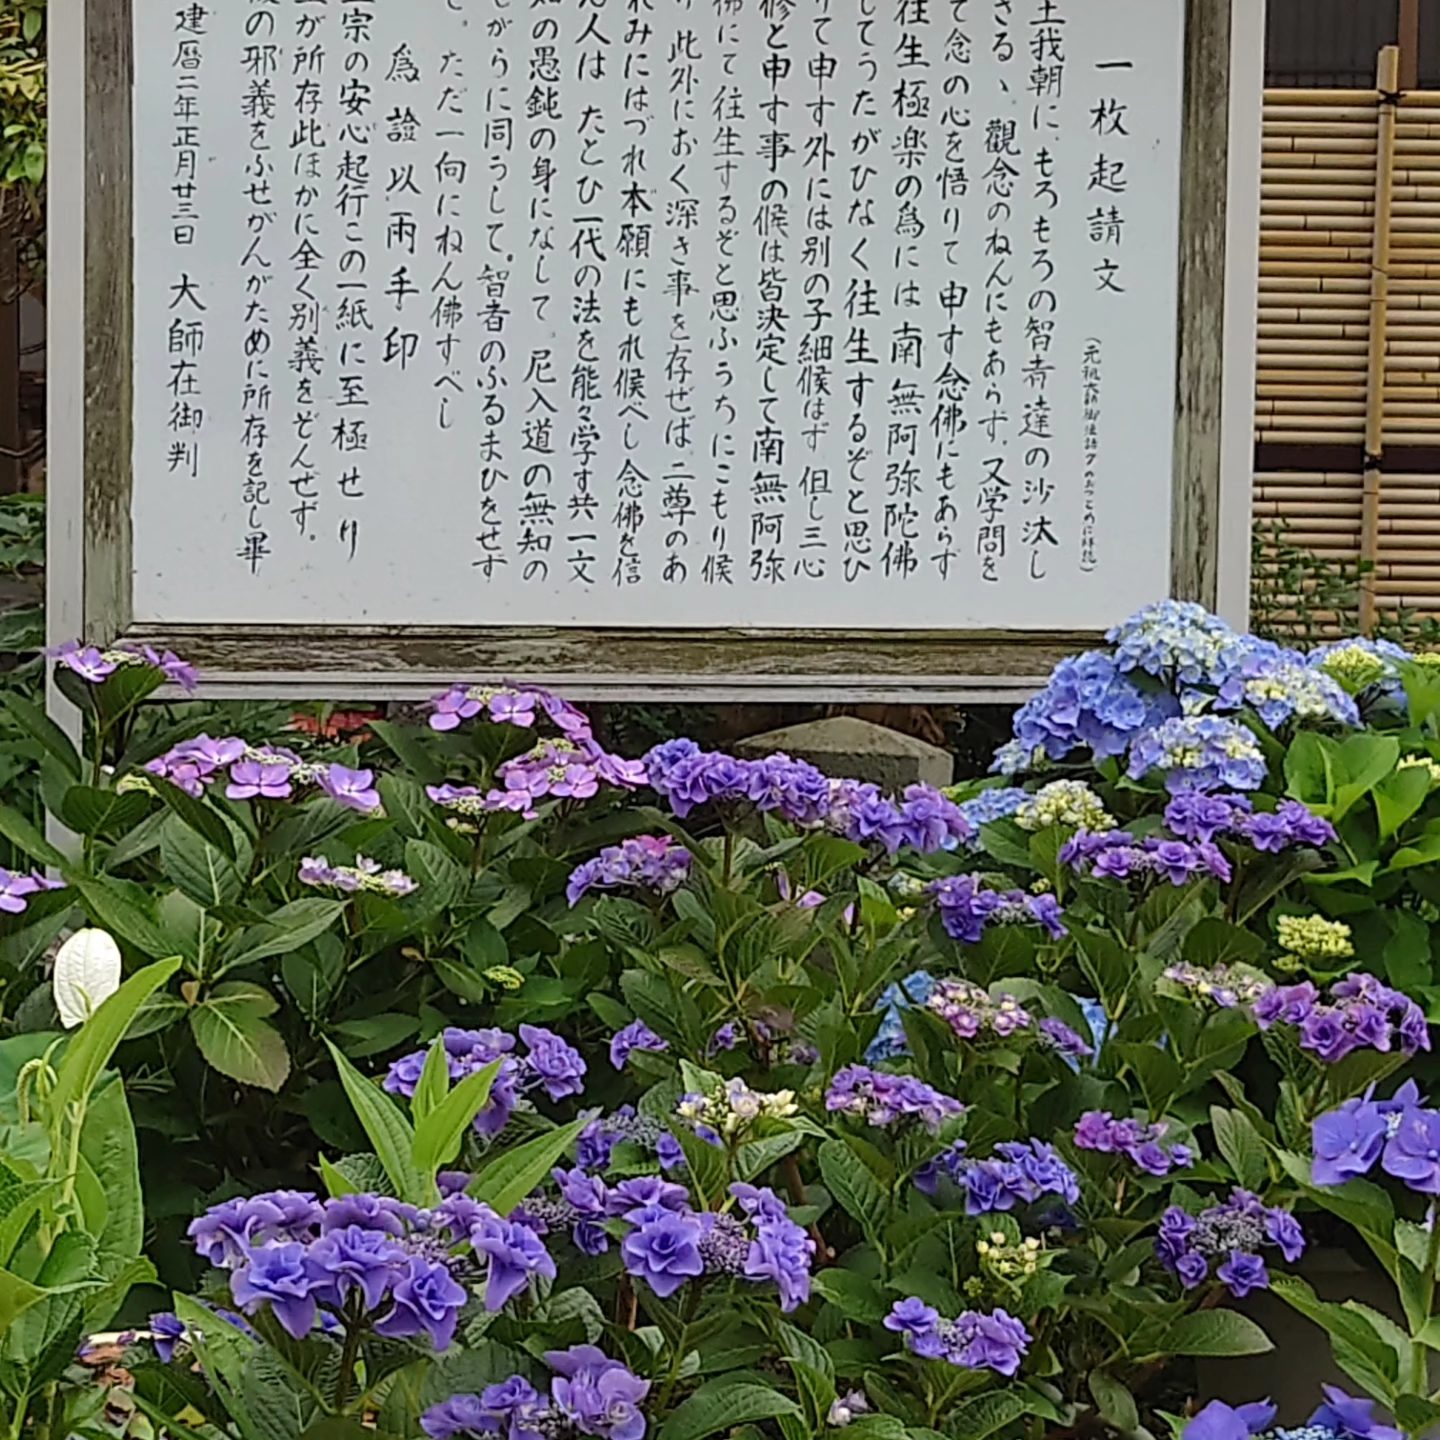 一枚起請文 （元祖大師御法語夕のおつとめに拝読）
土我朝に、もろもろの智者達の沙汰し
さるゝ、觀念のねんにもあらず、又学問を
て念の心を悟りて 申す念佛にもあらず
往生極楽の爲には 南無阿弥陀佛
してうたがひなく往生するぞと思ひ
りて申す外には別の子細候はず 但し三心
修と申す事の候は皆決定して南無阿弥
佛にて往生するぞと思ふうちにこもり候
り 此外におく深き事を存ぜば、二尊のあ
れみにはづれ本願にもれ候べし 念佛を信
ん人は たとひ一代の法を能々学す共一文
知の愚鈍の身になして、尼入道の無知の
がらに同うして。智者のふるまひをせず
て。ただ一向にねん佛すべし
爲證以兩手印
宗の安心起行この一紙に至極せり
が所存此ほかに全く別義をぞんぜず。
の邪義をふせがんがために所存を記し畢
建暦二年正月廿三日 大師在御判